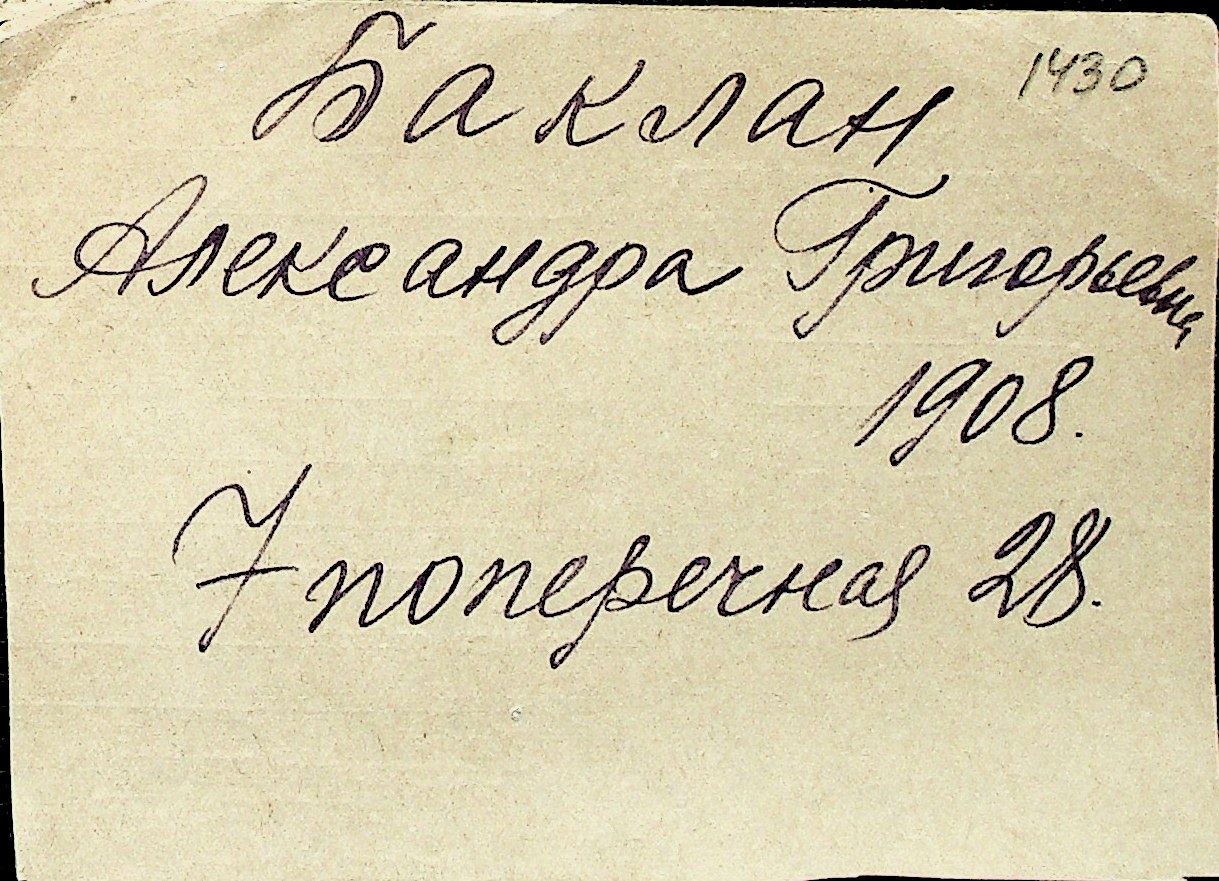 1430
Баклан
Александра Григорьевна
1908.
7 поперечная 28.